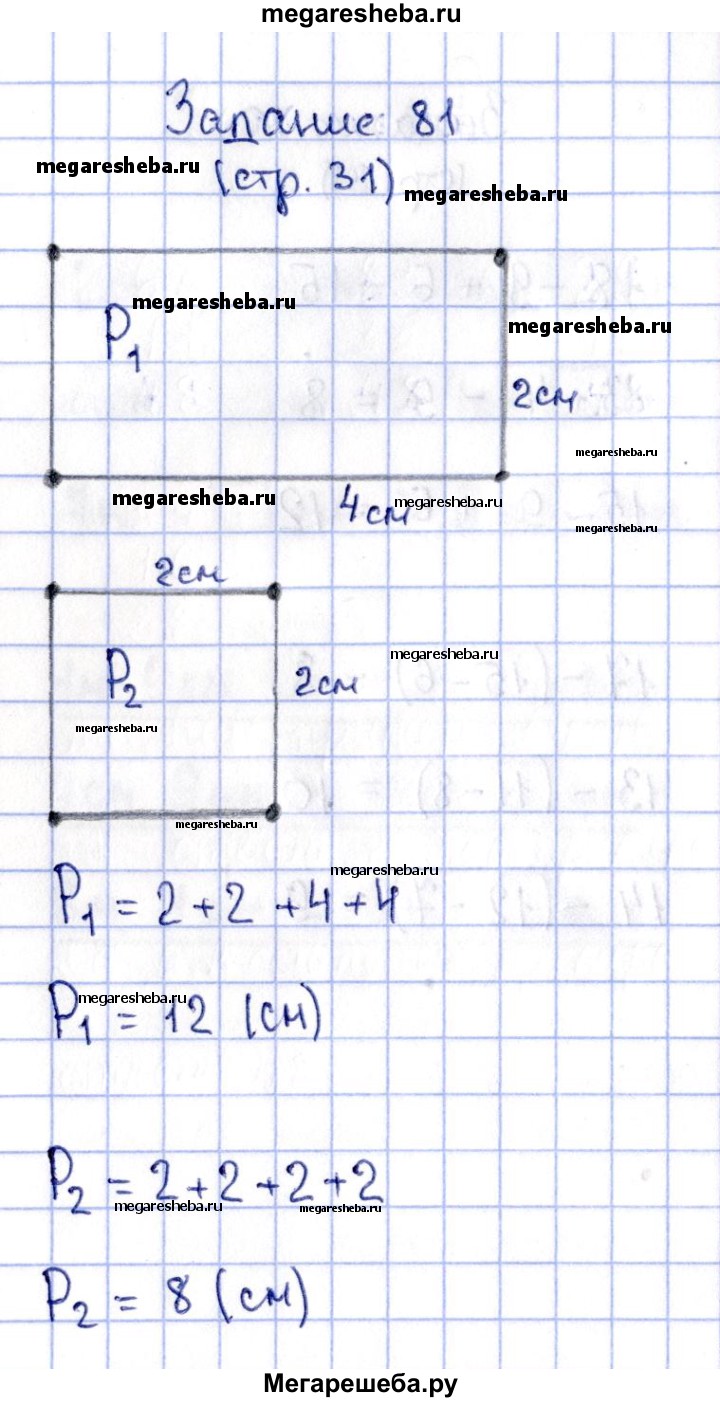 megaresheba.ru
Задание 81
megaresheba.ru
(стр. 31)
megaresheba.ru
megaresheba.ru
P1
megaresheba.ru
2см
megaresheba.ru
megaresheba.ru
4 см
megaresheba.ru
megaresheba.ru
2см
megaresheba.ru
P2
2см
megaresheba.ru
megaresheba.ru
megaresheba.ru
P1 = 2 + 2 + 4 + 4
megaresheba.ru
P1 = 12 (см)
P2 = 2 + 2 + 2 + 2
megaresheba.ru
megaresheba.ru
P2 = 8 (см)
Мегарешеба.ру